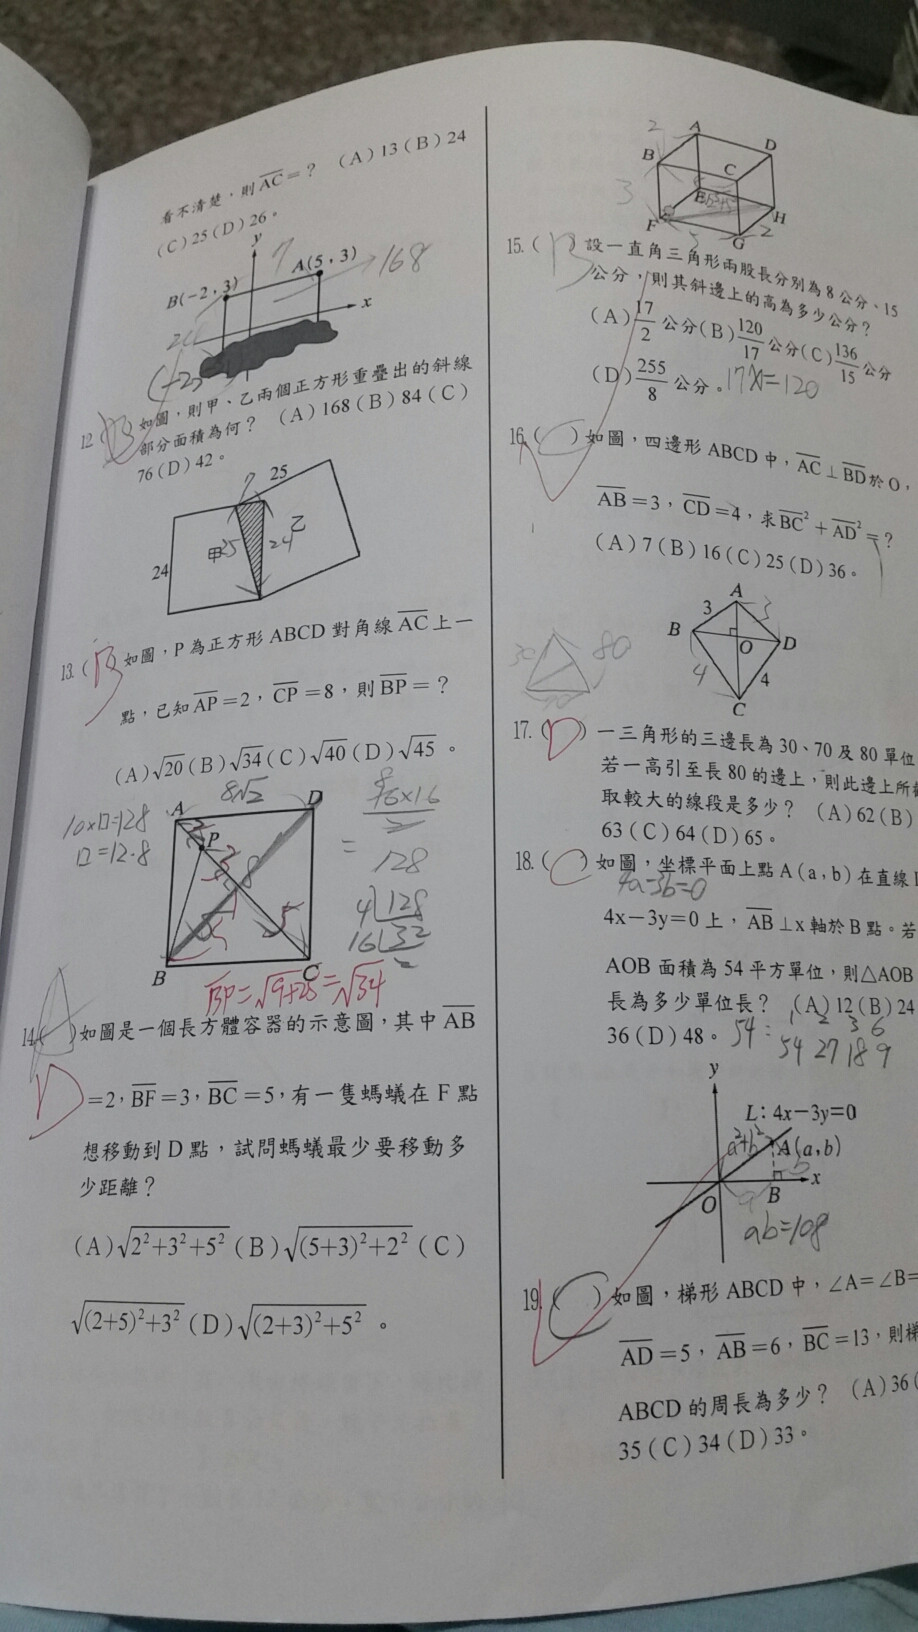 看不清楚，則AC=？ (A)13(B)24
(C)25(D)26。
y
7
A(5,3)
168
B(-2,3)
x
12( B )如圖，則甲、乙兩個正方形重疊出的斜線
部分面積為何？ (A)168(B)84(C)
76(D)42。
7
25
甲
25
24
乙
24
13.( B )如圖，P為正方形ABCD對角線AC上一
點，已知AP=2，CP=8，則BP=？
(A)√20(B)√34(C)√40(D)√45。
8√2
A
D
P
2
3
8
5
5
B
C
10×□=128
□=12.8
16×16
2
=
128
4 128
16 32
2
BP=√9+25=√34
14( A )如圖是一個長方體容器的示意圖，其中AB
D
=2，BF=3，BC=5，有一隻螞蟻在F點
想移動到D點，試問螞蟻最少要移動多
少距離？
(A)√2²+3²+5²(B)√(5+3)²+2²(C)
√(2+5)²+3²(D)√(2+3)²+5²。
2
A
D
B
C
3
E
H
F
5
G
2
15.( B )設一直角三角形兩股長分別為8公分、15
公分，則其斜邊上的高為多少公分？
(A)17/2公分(B)120/17公分(C)136/15公分
(D)255/8公分。17X=120
16( C )如圖，四邊形ABCD中，AC⊥BD於O，
AB=3，CD=4，求BC²+AD²=？
(A)7(B)16(C)25(D)36。
A
3
3
B
O
D
4
4
C
30
80
70
17.( D )一三角形的三邊長為30、70及80單位
若一高引至長80的邊上，則此邊上所截
取較大的線段是多少？ (A)62(B)
63(C)64(D)65。
18.( C )如圖，坐標平面上點A(a,b)在直線L
4a-3b=0
4x-3y=0上，AB⊥x軸於B點。若
AOB面積為54平方單位，則△AOB
長為多少單位長？ (A)12(B)24
36(D)48。54: 1 2 3 6
54 27 18 9
y
L:4x-3y=0
a²+b²
A(a,b)
b
x
O
a
B
ab=108
19.( C )如圖，梯形ABCD中，∠A=∠B=
AD=5，AB=6，BC=13，則梯
ABCD的周長為多少？ (A)36(
35(C)34(D)33。